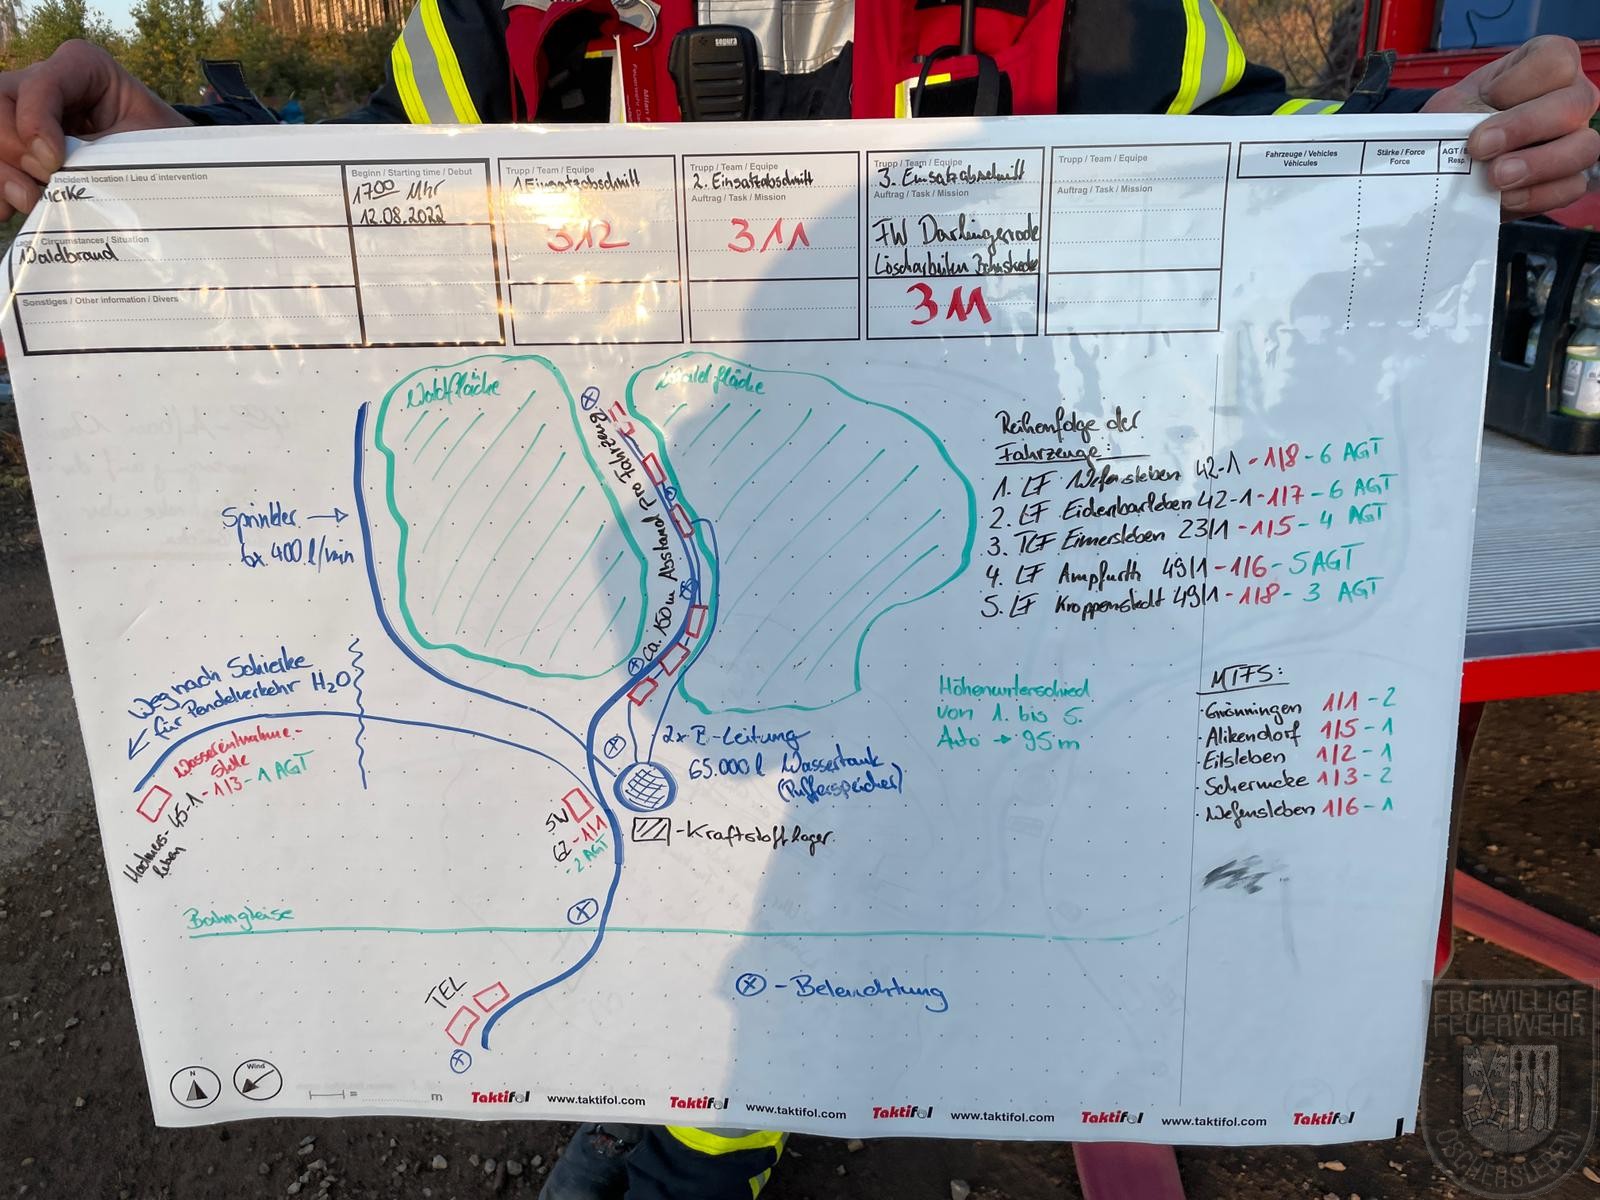 segura
Incident location / Lieu d'intervention
Beginn / Starting time / Debut
17:00 Uhr
12.08.2022
Circumstances / Situation
Waldbrand
Sonstiges / Other information / Divers
Trupp / Team / Equipe
1. Einsatzabschnitt
Auftrag / Task / Mission
312
Trupp / Team / Equipe
2. Einsatzabschnitt
Auftrag / Task / Mission
311
Trupp / Team / Equipe
3. Einsatzabschnitt
Auftrag / Task / Mission
FW Darlingerode
Löscharbeiten Bahnstrecke
311
Trupp / Team / Equipe
Auftrag / Task / Mission
Fahrzeuge / Vehicles
Véhicules
Stärke / Force
Force
Waldfläche
Waldfläche
ca. 150 m Abstand pro Fahrzeug
Sprinkler →
6x 400 l/min
Reihenfolge der
Fahrzeuge:
1. LF Wefensleben 42-1 - 1/8 - 6 AGT
2. LF Eichenbarleben 42-1 - 1/7 - 6 AGT
3. TLF Eimersleben 23/1 - 1/5 - 4 AGT
4. LF Ampfurth 49/1 - 1/6 - 5 AGT
5. LF Kroppenstedt 49/1 - 1/8 - 3 AGT
Weg nach Schierke
für Pendelverkehr H2O
Wasserentnahme-
stelle
45-1 - 1/3 - 1 AGT
Höhenunterschied
von 1. bis 5.
Auto → 95 m
MTFS:
· Gröningen 1/1 - 2
· Alikendorf 1/5 - 1
· Eilsleben 1/2 - 1
· Schermcke 1/3 - 2
· Wefensleben 1/6 - 1
2x B-Leitung
65.000 l Wassertank
(Pufferspeicher)
SW
62 - 1/1
- 2 AGT
- Kraftstofflager
Bahngleise
TEL
- Beleuchtung
N
Wind
= m
Taktifol www.taktifol.com Taktifol www.taktifol.com Taktifol www.taktifol.com Taktifol www.taktifol.com Taktifol
FREIWILLIGE
FEUERWEHR
OSCHERSLEBEN